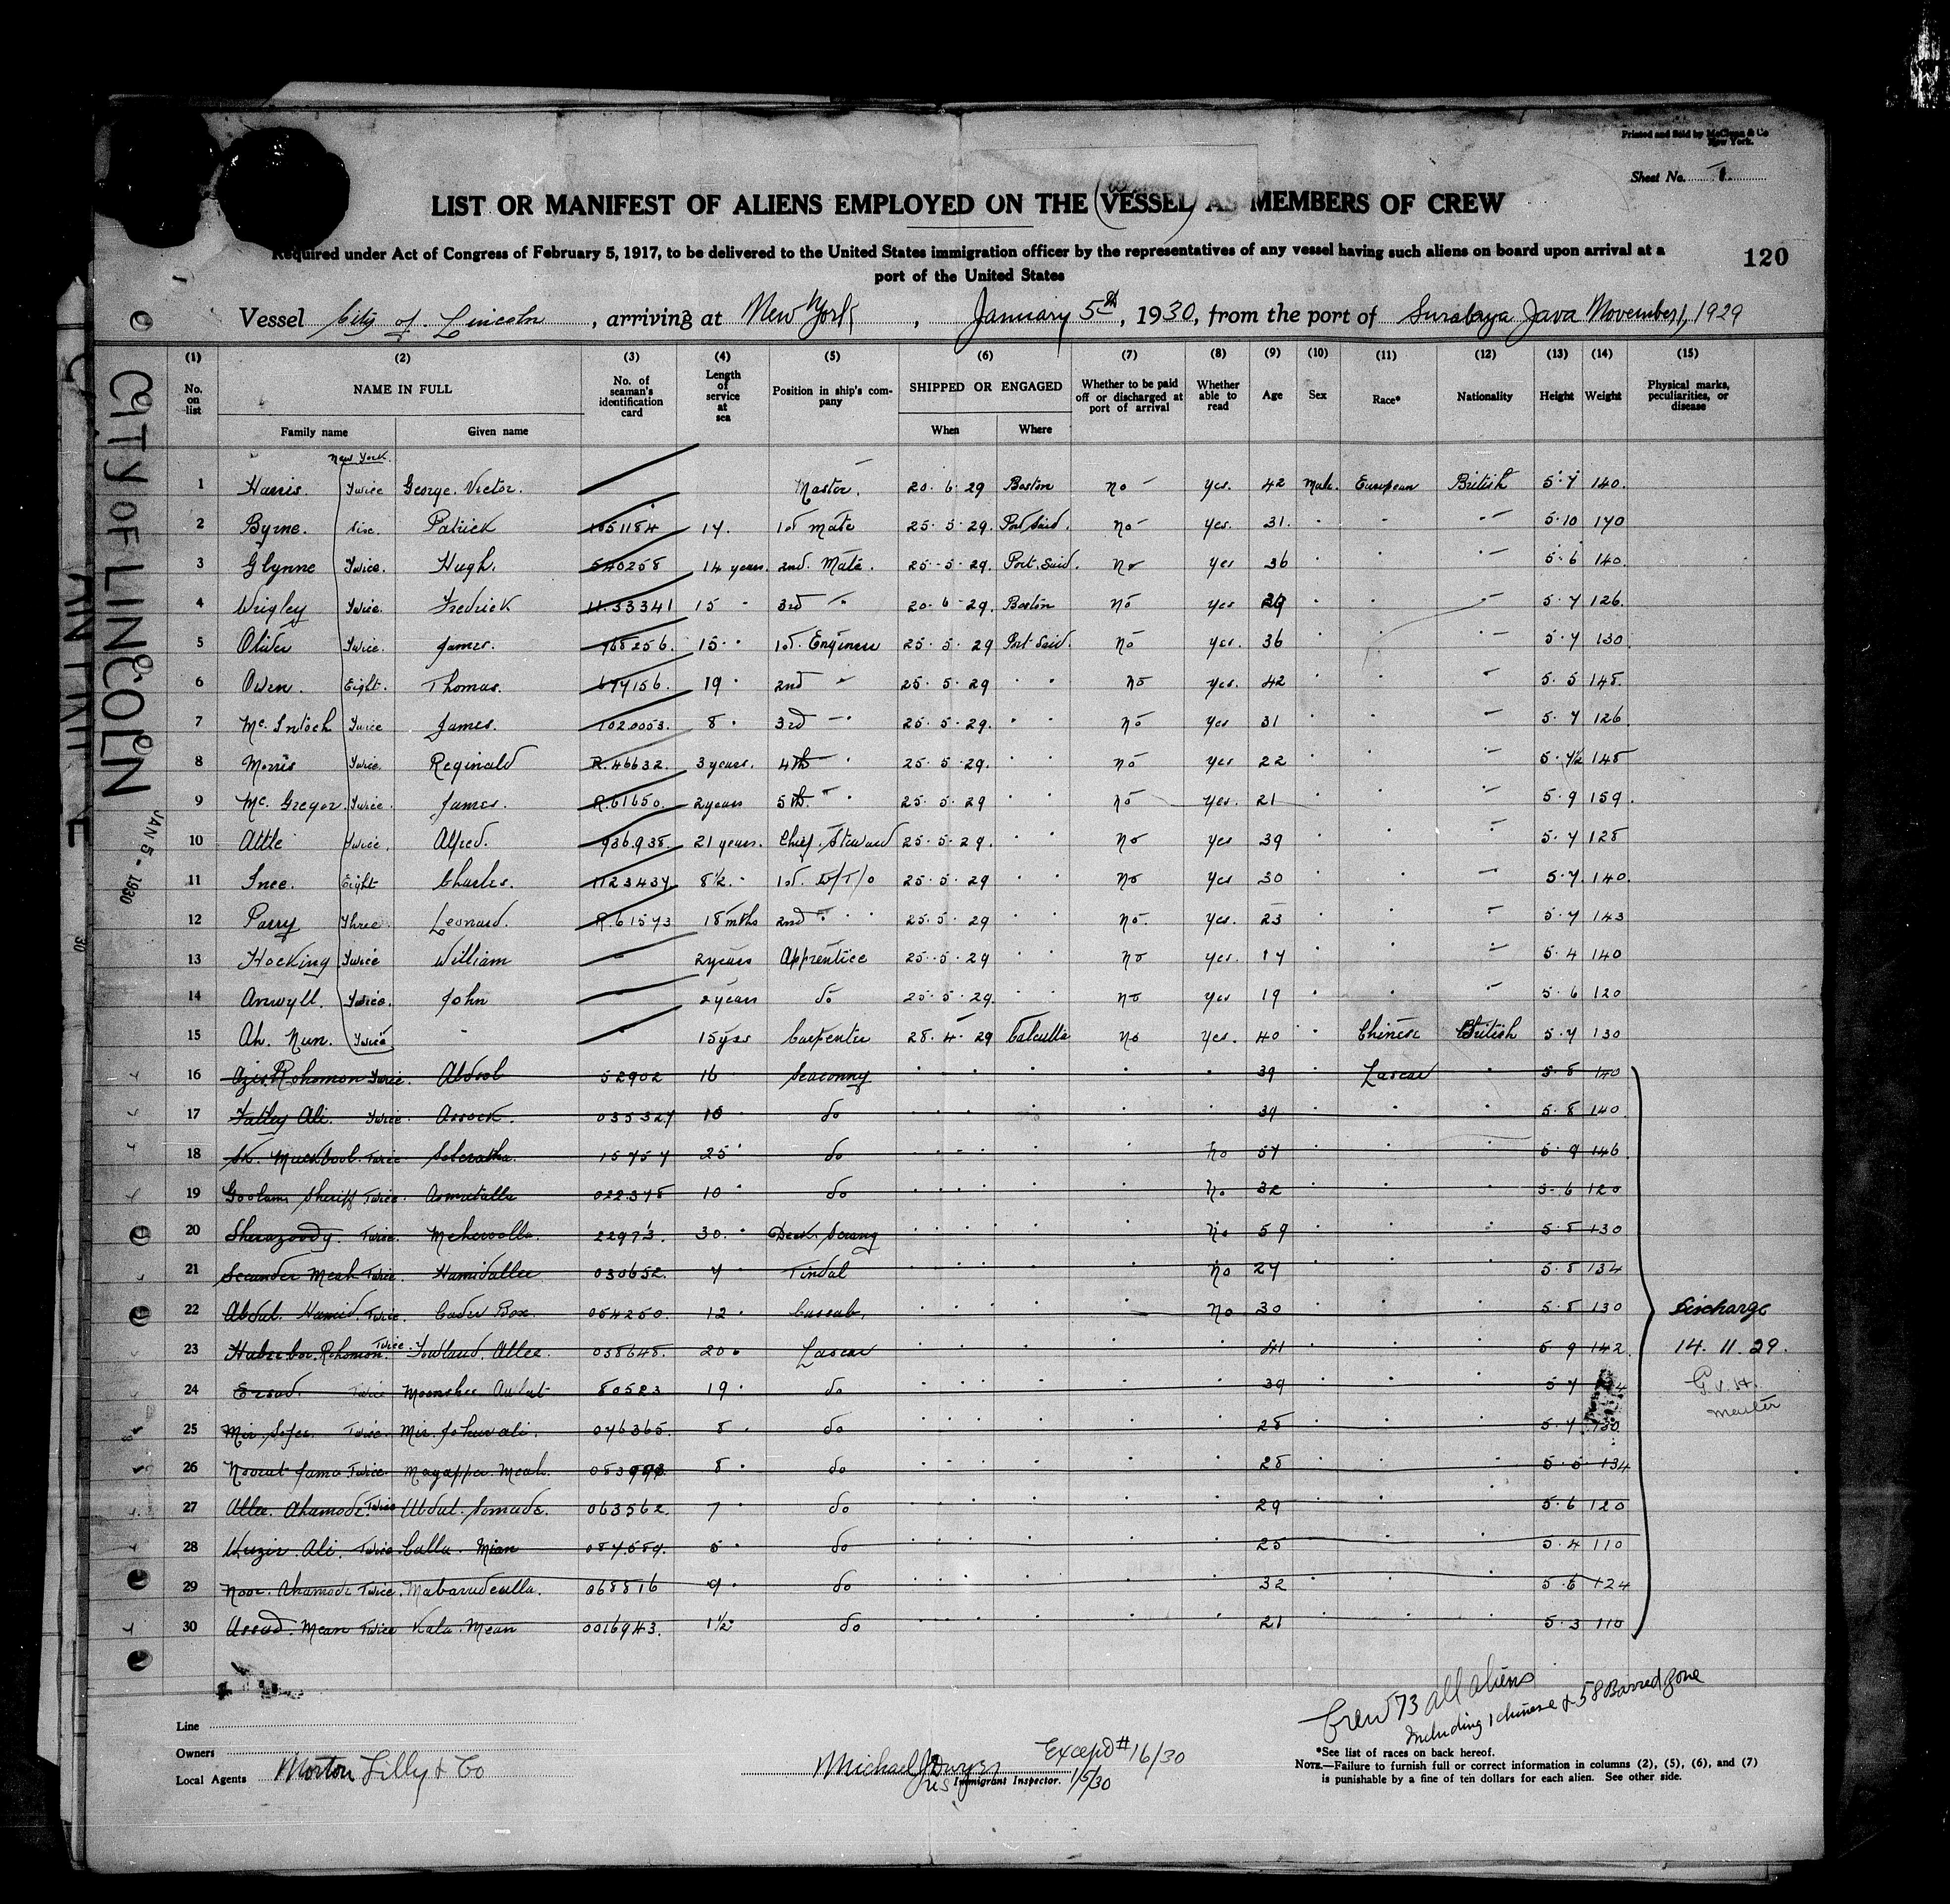 Printed and Sold by McClunn & Co
New York.
Sheet No. 1.
LIST OR MANIFEST OF ALIENS EMPLOYED ON THE (VESSEL) AS MEMBERS OF CREW
Required under Act of Congress of February 5, 1917, to be delivered to the United States immigration officer by the representatives of any vessel having such aliens on board upon arrival at a
port of the United States
120
Vessel City of Lincoln, arriving at New York, January 5th, 1930, from the port of Surabaya Java November 1, 1929
(1) (2) (3) (4) (5) (6) (7) (8) (9) (10) (11) (12) (13) (14) (15)
No. on list NAME IN FULL No. of seaman's identification card Length of service at sea Position in ship's company SHIPPED OR ENGAGED Whether to be paid off or discharged at port of arrival Whether able to read Age Sex Race* Nationality Height Weight Physical marks, peculiarities, or disease
Family name Given name When Where
New York.
1 Harris. Twice George. Victor. Master. 20. 6. 29 Boston no yes. 42 Male. European British 5.7 140.
2 Byrne. Six. Patrick 1051184 14. 1st mate 25.5.29. Port Said. no yes. 31. 5.10 170
3 Glynne Twice. Hugh. 540258 14 years. 2nd. Mate. 25.5.29. Port. Said. no yes 36 5.6 140.
4 Wrigley Twice. Fredrick 11.33341 15 " 3rd " 20.6.29. Boston no yes 29 5.7 126.
5 Oliver Twice. James. 768256. 15. " 1st. Engineer 25.5.29 Port Said. no yes. 36 5.7 130.
6 Owen. Eight. Thomas. 674156. 19 " 2nd " 25.5.29 " " no yes. 42 5.5 148.
7 Mc. Intoch Twice James. 1020053. 8 " 3rd " 25.5.29. " " no yes 31 5.7 126
8 Morris Twice. Reginald R.46632. 3 years. 4th " 25.5.29. " " no yes 22 5.7½ 148
9 Mc. Gregor. Twice. James. R.61650. 2 years 5th. " 25.5.29 " " no yes. 21 5.9 159.
10 Attle Twice. Alfred. 936.938. 21 years. Chief. Steward 25.5.29. " " no yes 39 5.7 128
11 Inee. Eight Charles. 1123437 8½. " 1st. W/T/o 25.5.29 " " no yes 30 5.7. 140.
12 Parry Three. Leonard. R.61573 18 mths 2nd " " 25.5.29 " " no. yes. 23 5.7 143
13 Hocking Twice William 2 years Apprentice 25.5.29 " " no yes. 17 5.4 140
14 Anwyll. Twice. John 2 years do 25.5.29. " " no yes 19 5.6 120
15 Ah. Nun. Twice 15 yrs Carpenter 28.4.29 Calcutta no yes. 40 Chinese British 5.7 130
16 Azis Rohomon Twice. Abdool 52902 16 Seaconny 39 Lascar 5.8 140
17 Fatley Ali. Twice. Assock. 035327 10 do 39 5.8 140.
18 Sk. Muckbool. Twice 15757 25 " do no 57 5.9 146
19 Goolam Sheriff Twice. Asmutalla 022378 10 " do no 32 5.6 120
20 Sherazoody. Twice. Meheroolla. 22973. 30. " Deck Serang no 59 5.8 130
21 Secunder Meah Twice. Hamidallee 030652. 7 " Tindal no 27 5.8 134
22 Abdul. Hamid. Twice. Cader Box. 054250. 12 " Cassab. no 30 5.8 130 Discharge
23 Habebor. Rohomon. Twice Fowland. Allee. 038648. 20 " Lascar 41 5.9 142. 14. 11. 29.
24 Ersad. Twice Moonshee. 80523 19 " do 39 5.7 G. V. H.
25 Mir. Sofer. Twice. Mir. Johurali. 046365. 8 " do 28 5.7 130. Master
26 Noorul Twice. Meah. 8 " do 28 5.5 134
27 Allee. Ahamode. Twice Abdul. Somade. 063562. 7 " do 29 5.6 120
28 Ali. Twice. Calla. Mian 087587. 5 " do 25 5.4 110
29 Noor. Ahamode Twice. Mabarudeulla. 068816 9 " do 32 5.6 124
30 Assad. Mean Twice Kala. Mean 0016943. 1½ " do 21 5.3 110
Crew 73 all aliens
Including 1 chinese & 58 Barred Zone
Line
Owners
Local Agents Morton Lilly & Co
Michael J Dwyer
US Immigrant Inspector. 1/5/30
Excepd # 16/30
*See list of races on back hereof.
NOTE.—Failure to furnish full or correct information in columns (2), (5), (6), and (7)
is punishable by a fine of ten dollars for each alien. See other side.
CITY OF LINCOLN
JAN 5 - 1930